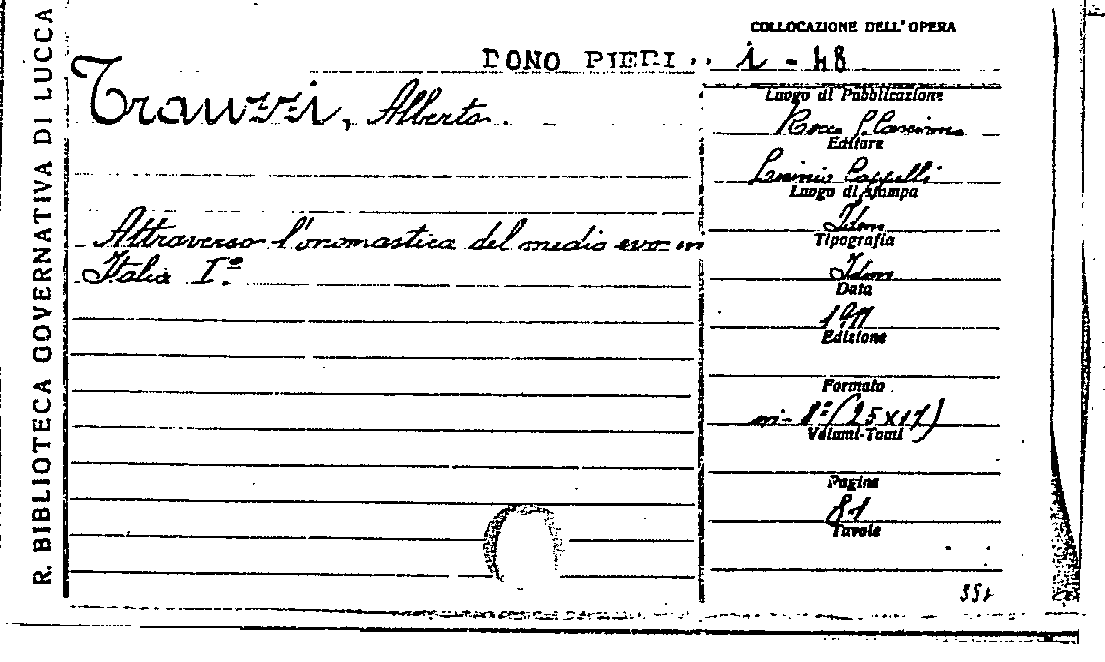 R. BIBLIOTECA GOVERNATIVA DI LUCCA
COLLOCAZIONE DELL'OPERA
DONO PIERI.. i - 48
Trauzzi, Alberto.
Attraverso l'onomastica del medio evo in
Italia Iº
Luogo di Pubblicazione
Rocca S. Casciano
Editore
Licinio Cappelli
Luogo di Stampa
Idem
Tipografia
Idem
Data
1911
Edizione
Formato
in-8º (25x17)
Volumi-Tomi
Pagine
81
Tavole